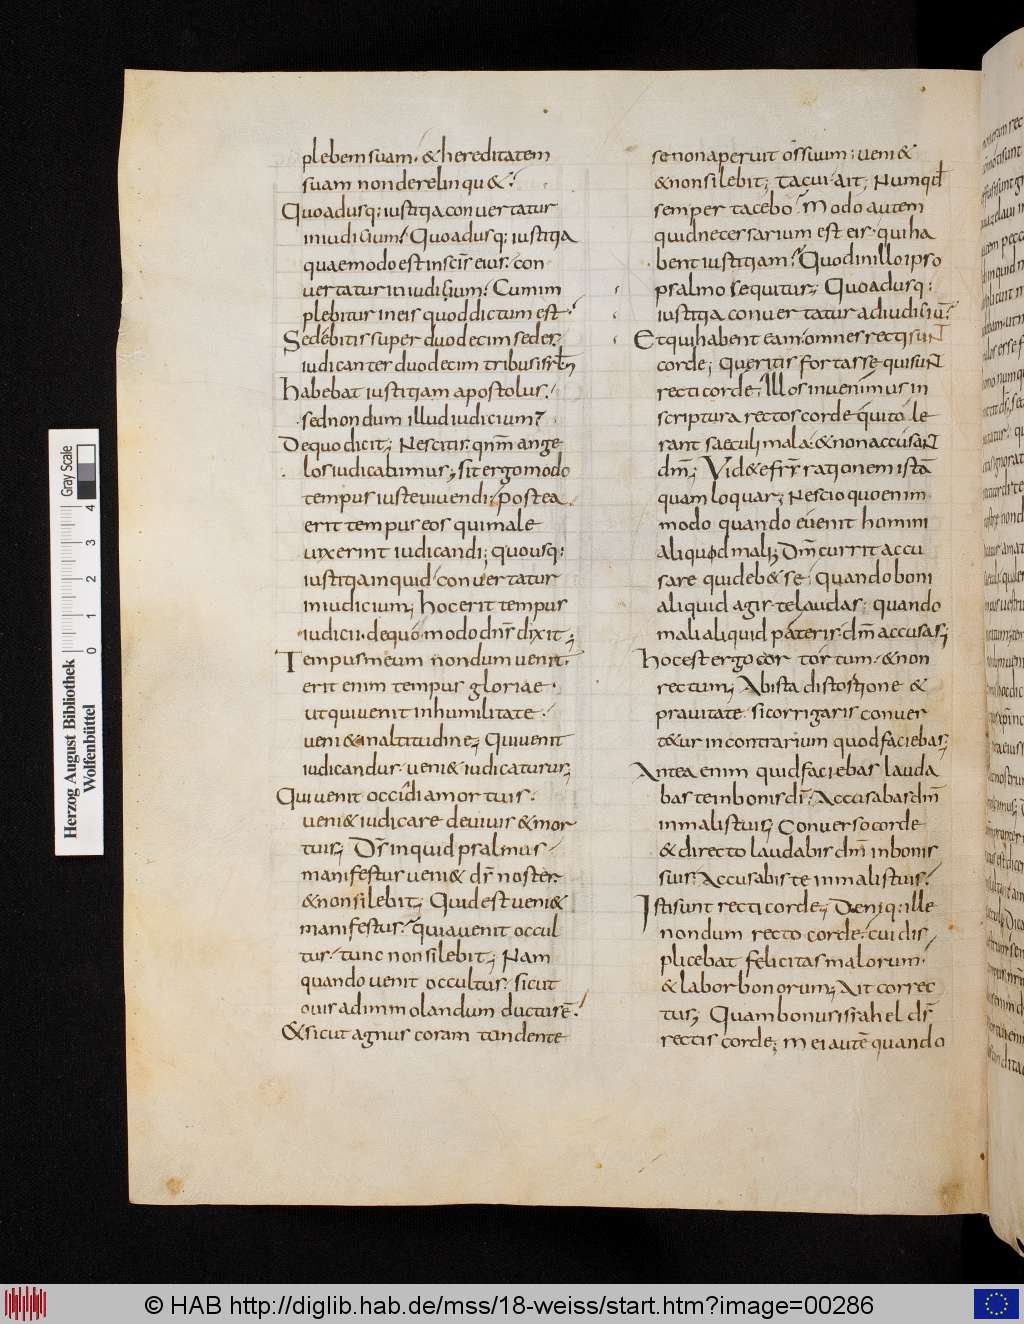 plebem suam. & hereditatem
suam non derelinqu&.
Quoadusq: iustitia conuertatur
in iudicium? Quoadusq: iustitia
quae modo est in scīs eius. con
uertatur in iudicium? Cum im
plebitur in eis quod dictum est.
Sedebitis super duodecim sedes
iudicantes duodecim tribus isrl
habebat iustitiam apostolus.
sed nondum illud iudicium?
De quo dicit; Nescitis. qnm ange
los iudicabimus; sit ergo modo
tempus iuste uiuendi; postea
erit tempus eos qui male
uixerint iudicandi; quousq:
iustitia inquid conuertatur
in iudicium; hoc erit tempus
iudicii. de quo modo dns dixit;
Tempus meum nondum uenit.
erit enim tempus gloriae.
ut qui uenit in humilitate.
ueni& in altitudine; Qui uenit
iudicandus. ueni& iudicaturus;
Qui uenit occidi a mortuis.
ueni& iudicare de uiuis & mor
tuis; Ds inquid psalmus
manifestus ueni& ds noster.
& non silebit; Quid est ueni&
manifestus? quia uenit occul
tus. tunc non silebit; Nam
quando uenit occultus. sicut
ouis ad immolandum ductus ē.
& sicut agnus coram tondente
se non aperuit os suum: ueni&
& non silebit; tacui ait; Numqd
semper tacebo? Modo autem
quid necessarium est eis. qui ha
bent iustitiam? Quod in illo ipso
psalmo sequitur; Quoadusq:
iustitia conuertatur ad iudiciū?
Et qui habent eam omnes recti sunt
corde; Queritis fortasse qui sunt
recti corde. Illos inuenimus in
scriptura rectos corde qui tole
rant saeculi mala. & non accusant
dm; Vid& e frs rationem istā
quam loquar; Nescio quo enim
modo quando euenit homini
aliquod mali; Dm currit accu
sare qui deb& se; Quando boni
aliquid agis. te laudas. quando
mali aliquid pateris. dm accusas;
hoc est ergo cor tortum. & non
rectum; Ab ista distortione &
prauitate. si corrigaris conuer
t&ur in contrarium quod faciebas;
Antea enim quid faciebas lauda
bas te in bonis di. Accusabas dm
in malis tuis; Conuerso corde
& directo laudabis dm in bonis
suis. Accusabis te in malis tuis.
Isti sunt recti corde; Deniq: ille
nondum recto corde. cui dis
plicebat felicitas malorum.
& labor bonorum; Ait correc
tus; Quam bonus israhel ds
rectis corde; Mei autē quando
Gray Scale
0 1 2 3 4
Herzog August Bibliothek
Wolfenbüttel
© HAB http://diglib.hab.de/mss/18-weiss/start.htm?image=00286